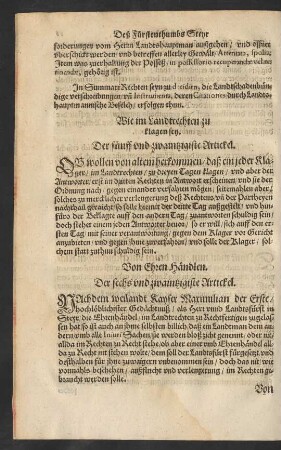 Deß Fürstenthumbs Steyr
forderungen vom Herrn Landtshauptman außgehen, und offtner
uberschickt werden, und betreffen allerley Gewält, Attentat, spolia,
Item was zuerhaltung der Posseß, in possessorio recuperandæ vel
retinendæ, gehörig ist.
In Summari Rechten seyn die
Landschadenbün-
dige verschreibungen
deren Citationes durch Landts-
hauptmannische Befelch, erfolgen thun.
Wie im Landrechten zu
klagen sey.
Der fünff und zwaintzigiste Artickel.
OB wollen von altem herkommen, daß ein jeder Kla-
ger, im Landtrechten, zu dreyen Tagen klagen, und aber der
Antworter, erst in dritten Rechten in Antwort erscheinen, und sie der
Ordnung nach, gegen einander verfahren mögen, seitemahlen aber,
solches zu mercklicher verlengerung deß Rechtens, und der Partheyen
nachthail geraicht, so solle hiemit der dritte Tag auffgestelt, und hin-
füro der Beklagte auff den andern Tag, zuantworten schuldig sein,
doch stehet einem jeden Antworter bevor, so er will, sich auff den er-
sten Tag, mit seiner verantwortung, gegen dem Klager vor Gericht
anzubieten, und gegen ihme zuverfahren, und solle der Klager, sol-
chem statt zuthun schuldig sein.
Von Ehren Händlen.
Der sechs und zwaintzigiste Artickel.
NAchdem weilandt Kayser Maximilian der Erste,
hochlöblichister Gedächtnuß, als Herr und Landtsfürst in
Steyr, die Ehrenhändel, im Landtrechten zu Rechtfertigen zugelas-
sen hat, so ist auch an ihme selbsten billich, daß ein Landtman dem
andern, umb
Sachen zu werden bloß nicht genennt, oder nit
allda im Rechten zu Recht stehe, ob aber einer umb Ehrenhändel all-
da zu Recht nit stehen wolte, dem soll der Landtsfürst fürgesetzt, und
deßhalben für ihme zuwaigern unbenommen sein, doch das nit wie
vormahls beschehen, auffflucht und verlengerung, im Rechten ge-
braucht werden solle.
Von